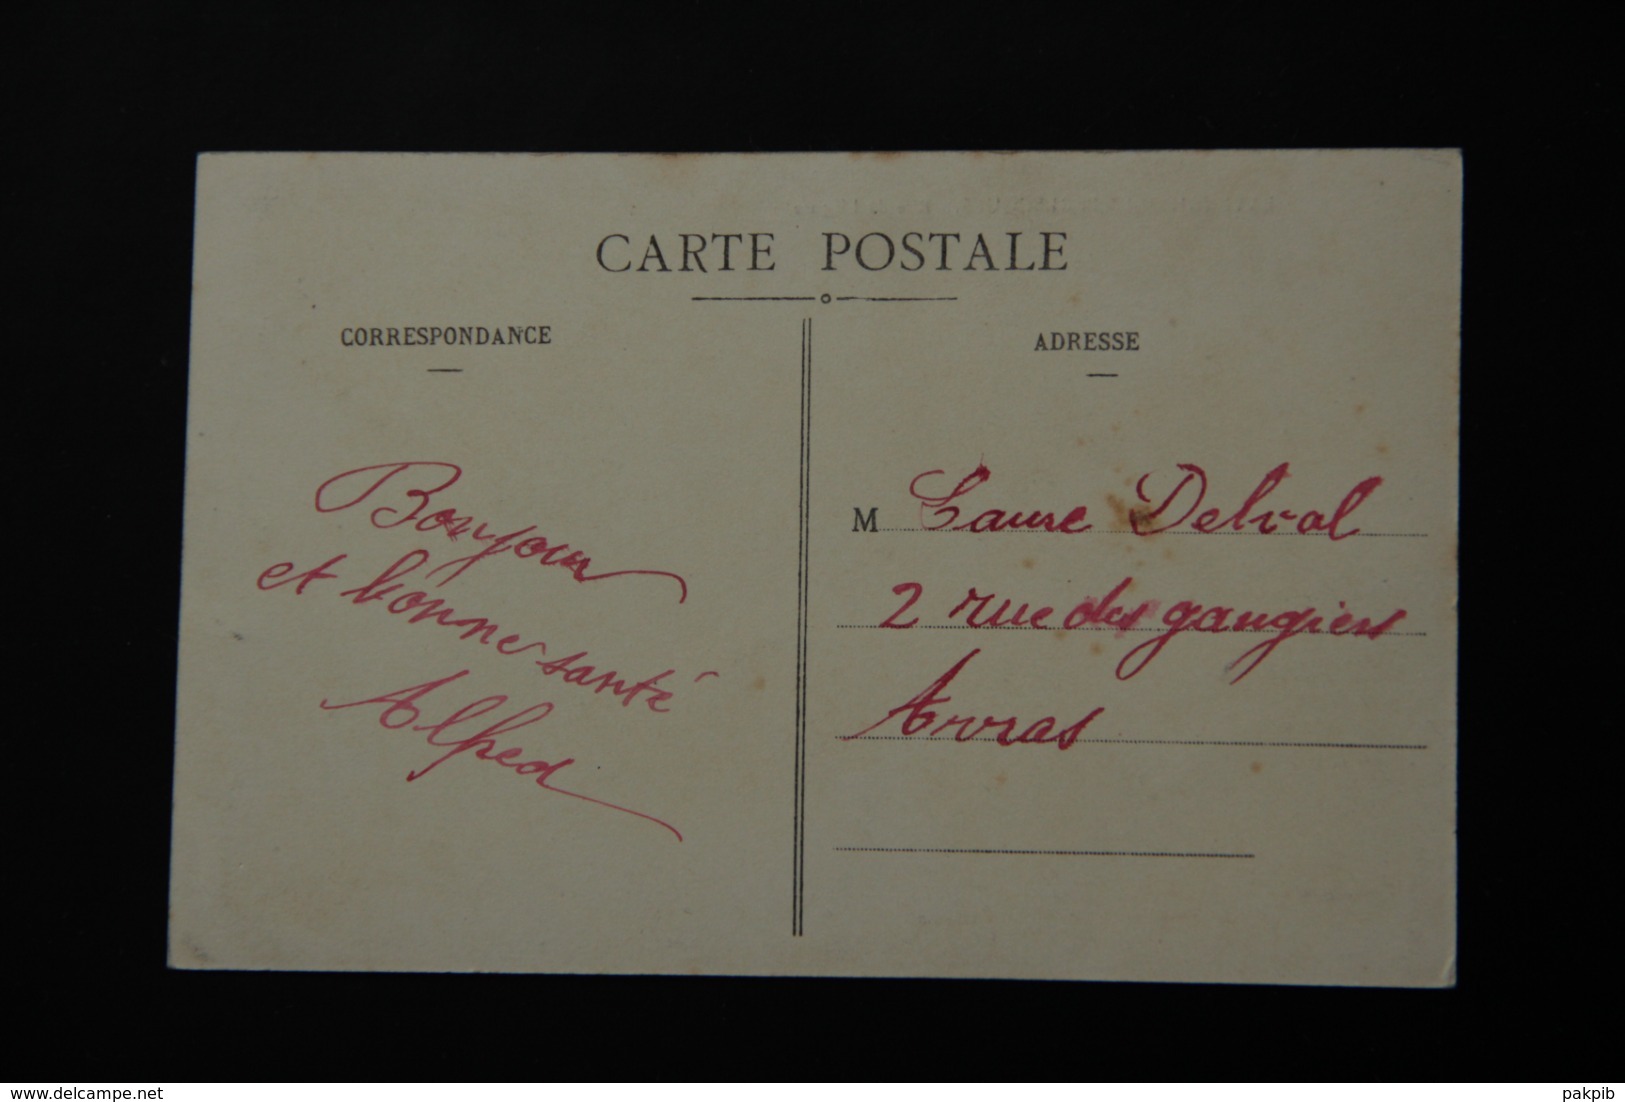 CARTE POSTALE
CORRESPONDANCE
ADRESSE
Bonjour
et bonne santé
Alfred
M Laure Delval
2 rue des gaugiers
Arras
www.delcampe.net
pakpib